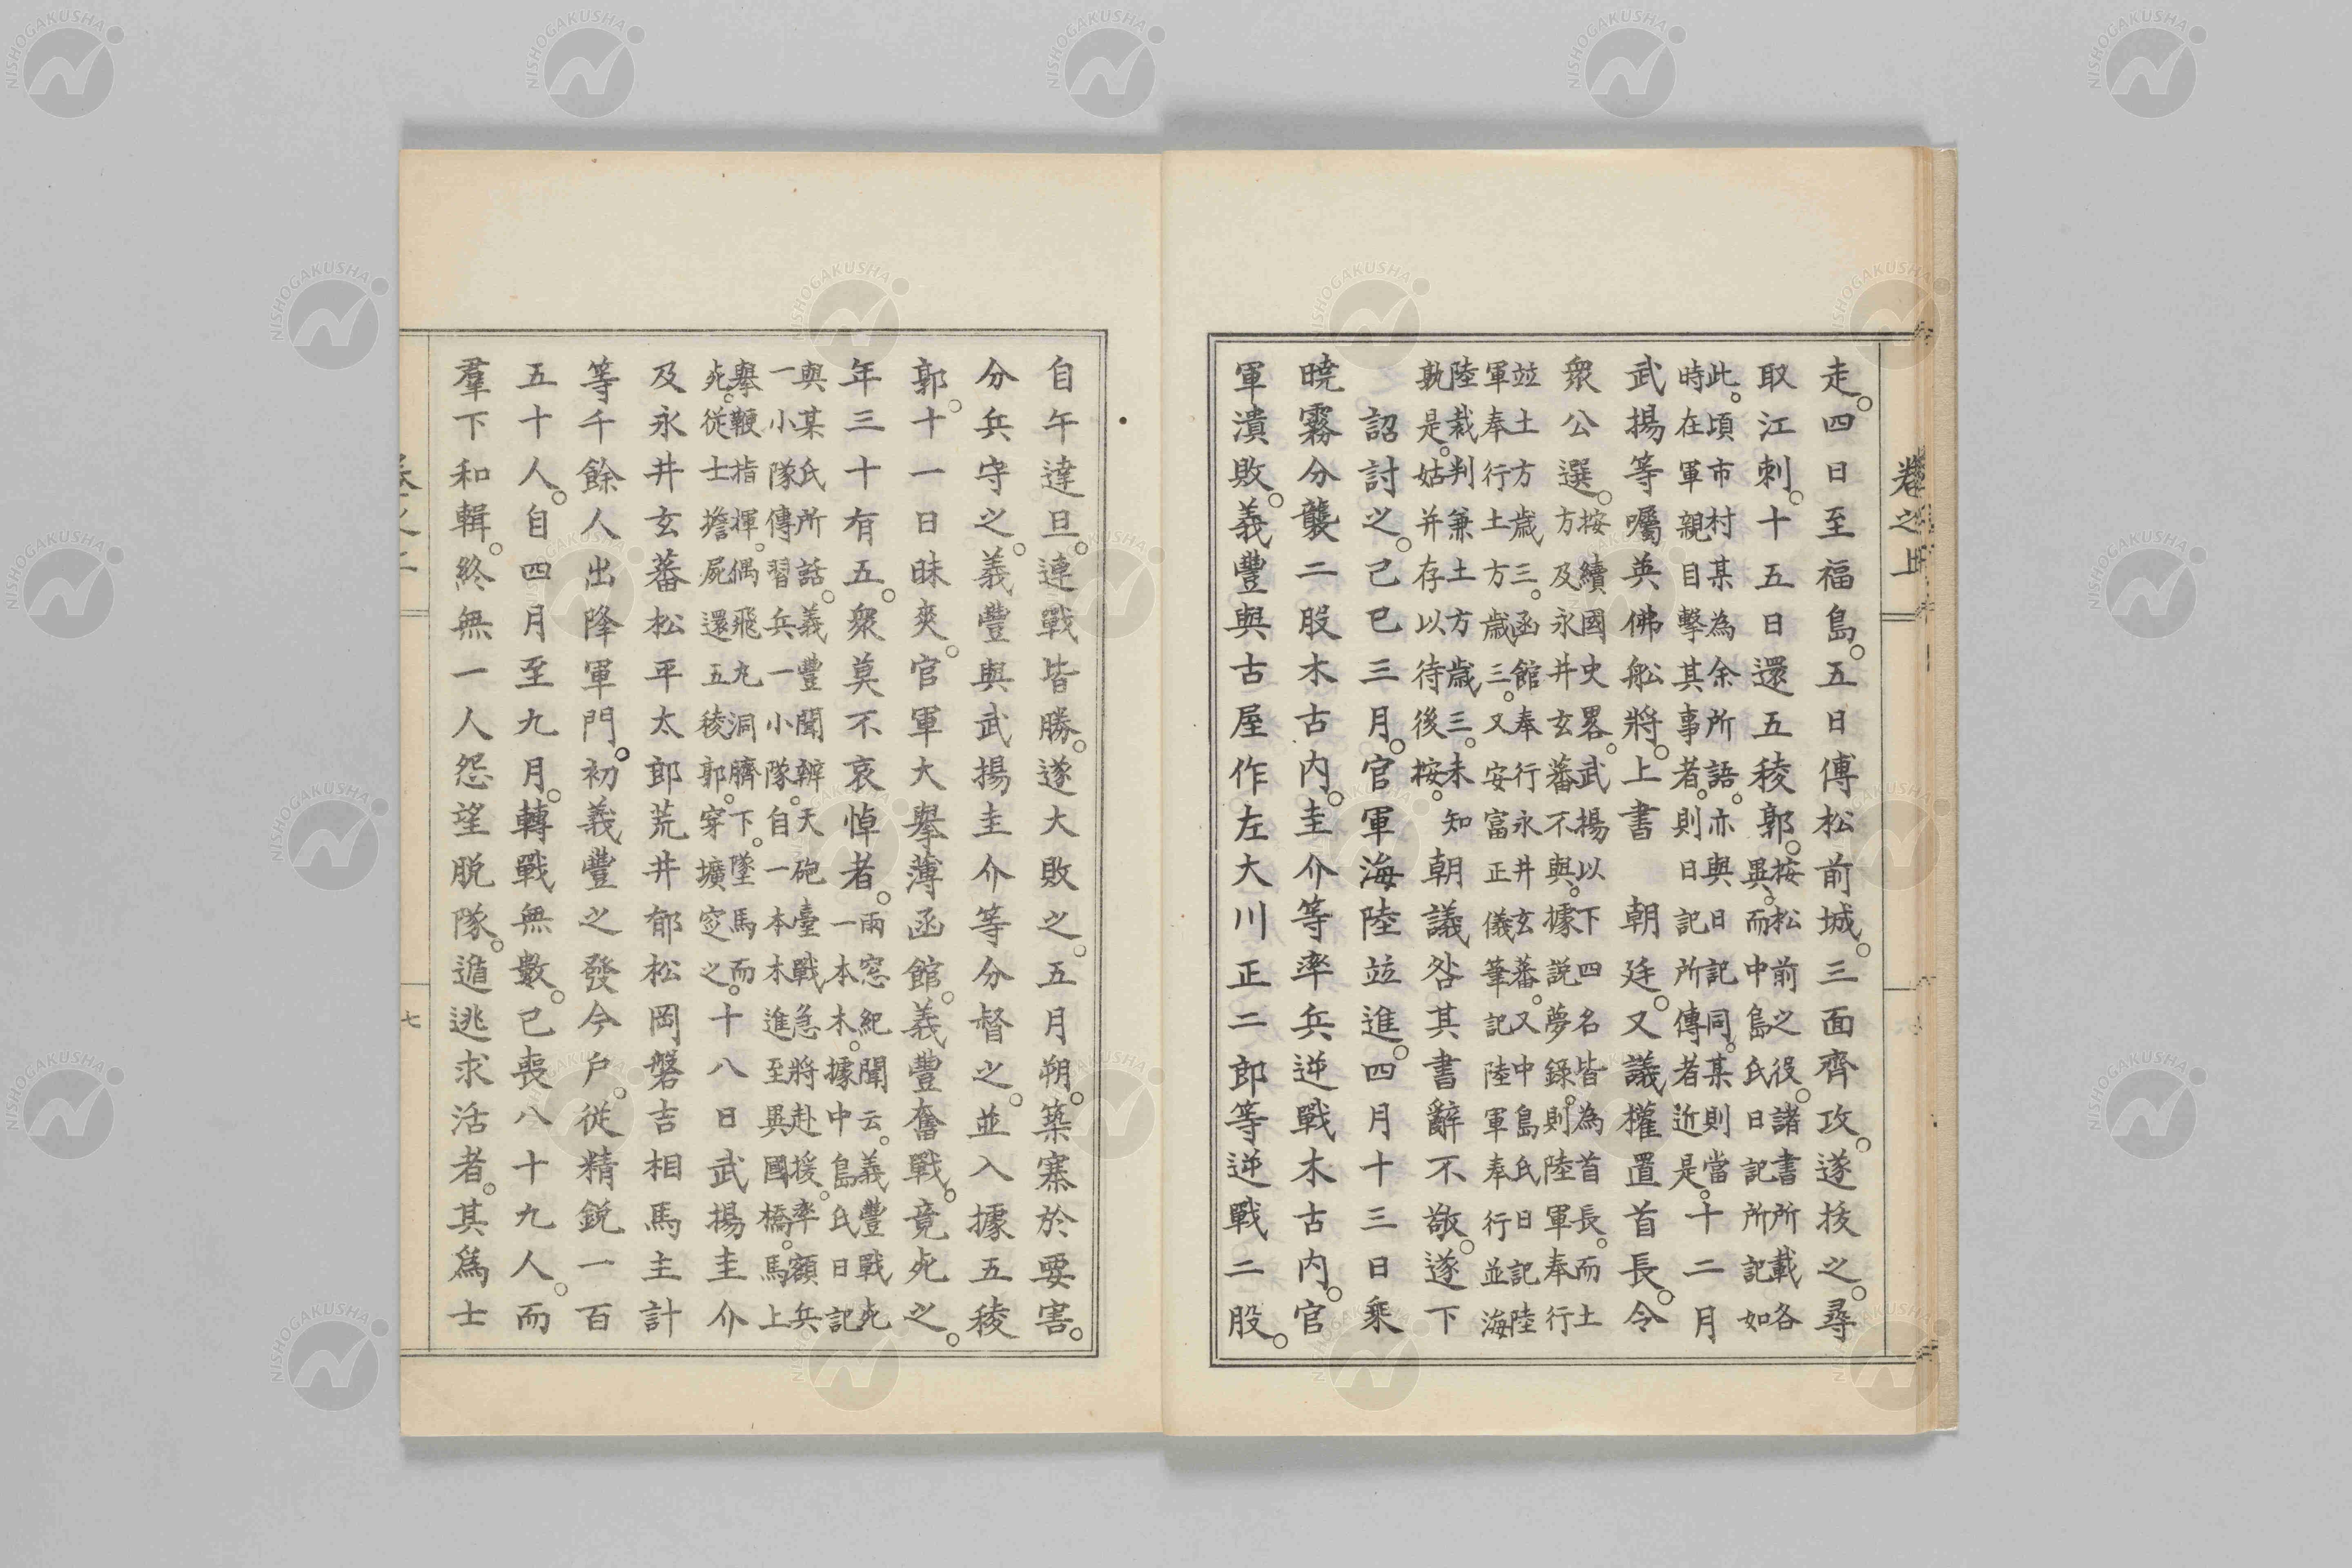 卷之上
走。四日至福島。五日傅松前城。三面齊攻。遂拔之。尋
取江刺。十五日還五稜郭。按松前之役。諸書所載各
異。而中島氏日記所記如
此。頃市村某為余所語。亦與日記同。某則當
時在軍親目擊其事者。則日記所傳者近是。十二月
武揚等囑英佛舩將。上書　朝廷。又議權置首長。令
衆公選。按續國史畧。武揚以下四名皆為首長。而土
方及永井玄蕃不與。據説夢錄。則陸軍奉行
竝土方歳三。函館奉行永井玄蕃。又中島氏日記陸
軍奉行土方歳三。又安富正儀筆記陸軍奉行並海
陸裁判兼土方歳三。未知
孰是。姑并存以待後按。朝議咎其書辭不敬。遂下
詔討之。己巳三月。官軍海陸竝進。四月十三日乘
曉霧分襲二股木古内。圭介等率兵逆戰木古内。官
軍潰敗。義豐與古屋作左大川正二郎等逆戰二股。
自午達旦。連戰皆勝。遂大敗之。五月朔。築寨於要害。
分兵守之。義豐與武揚圭介等分督之。並入據五稜
郭。十一日昧爽。官軍大擧薄函館。義豐奮戰。竟死之。
年三十有五。衆莫不哀悼者。兩窓紀聞云。義豐戰死
一本木。據中島氏日記
與某氏所話。義豐聞辨天砲臺戰急。將赴援。率額兵
一小隊傳習兵一小隊。自一本木進至異國橋。馬上
擧鞭指揮。偶飛丸洞臍下。墜馬而
死。從士擔屍還五稜郭。穿壙窆之。十八日武揚圭介
及永井玄蕃松平太郎荒井郁松岡磐吉相馬主計
等千餘人出降軍門。初義豐之發今戸。從精銳一百
五十人。自四月至九月。轉戰無數。已喪八十九人。而
羣下和輯。終無一人怨望脱隊。遁逃求活者。其爲士
七